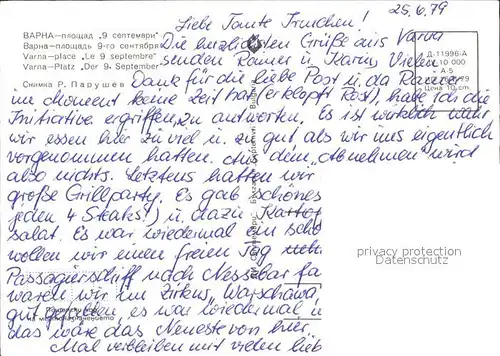 25.6.79
Liebe Tante Trudchen!
ВАРНА – площад „9 септември"
Варна – площадь 9-го сентября
Varna – place „Le 9 septembre"
Varna – Platz „Der 9. September"
Снимка Р. Парушев
Д-11996-А
10 000
А-5
79
Цена 10 cm.
Die herzlichsten Grüße aus Varna
senden Rainer u. Karin. Vielen
Dank für die liebe Post u. da Rainer
im Moment keine Zeit hat (er klopft Rost), habe ich die
Initiative ergriffen zu antworten. Es ist wirklich wahr
wir essen hier zu viel u. zu gut als wir uns eigentlich
vorgenommen hatten. Aus dem „Abnehmen" wird
also nichts. Letztens hatten wir
große Grillparty. Es gab schönes
jeden 4 Steaks!) u. dazu Kartof
salat. Es war wiedermal ein schö
wollen wir einen freien Tag
Passagierschiff nach Nessebar fa
waren wir im Zirkus „Warschawa
gut gefallen, es war wiedermal
das wäre das Neueste von hier.
Mal verbleiben mit vielen lieb
privacy protection
Datenschutz